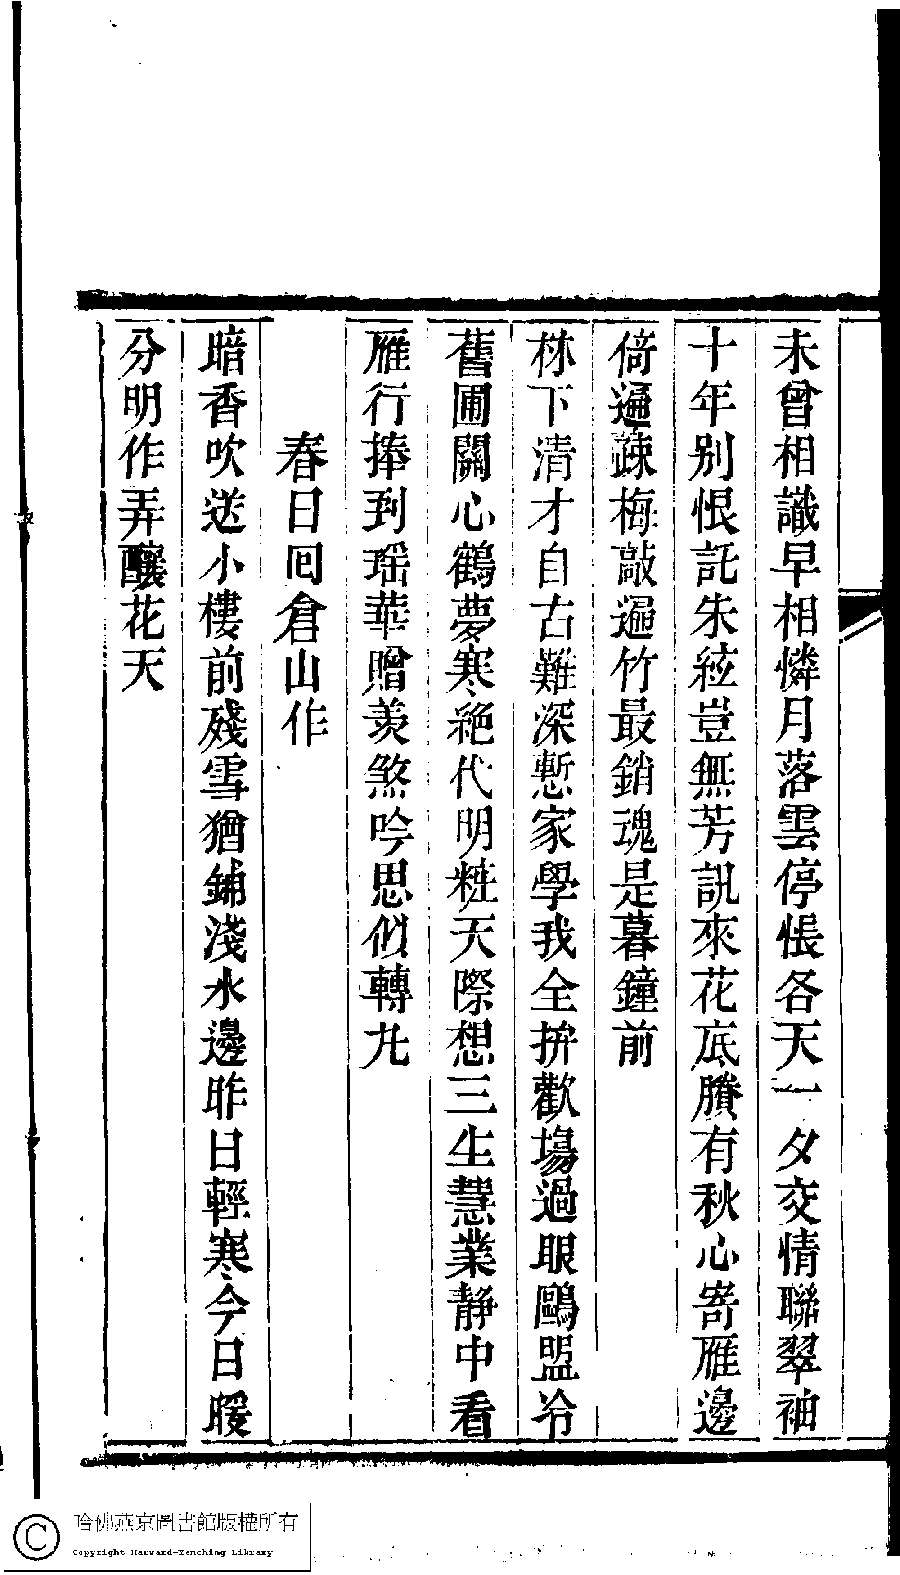 未曾相識早相憐月落雲停悵各天一夕交情聯翠袖
十年别恨託朱絃豈無芳訊來花底賸有秋心寄雁邊
倚遍疎梅敲遍竹最銷魂是暮鐘前
林下清才自古難深慙家學我全拚歡塲過眼鷗盟冷
舊圃關心鶴夢寒絕代明粧天際想三生慧業靜中看
雁行捧到瑶華贈羡煞吟思似轉丸
春日囘倉山作
暗香吹送小樓前殘雪猶鋪淺水邊昨日輕寒今日暖
分明作弄釀花天
哈佛燕京圖書館版權所有
Copyright Harvard-Yenching Library